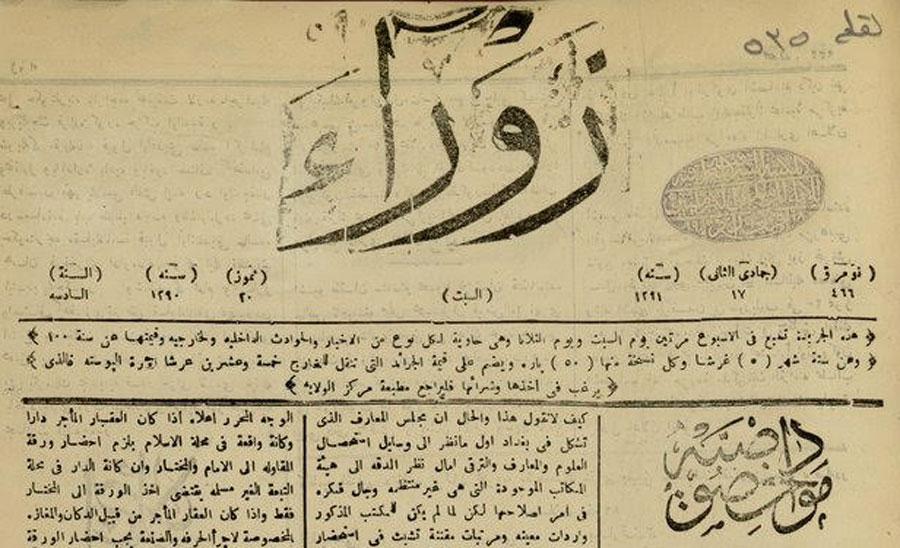 ٥٣٥
زوراء
( نومرو ) ( جمادى الثانى ) ( سنه ) ( تموز ) ( سنه ) ( السنة )
٤٦٦ ١٧ ١٢٩١ ( السبت ) ٢٠ ١٢٩٠ السادسه
هذه الجريدة تطبع فى الاسبوع مرتين يوم السبت ويوم الثلاثا وهى حاوية لكل نوع من الاخبار والحوادث الداخليه والخارجيه وقيمتها عن سنة ١٠٠
وعن ستة شهر ( ٥ ) غرشا وكل نسخة منها ( ٥٠ ) پاره ويضم على قيمة الجرائد التى تنقل للخارج خمسة وعشرين غرشا اجرة البوسته فالذى
يرغب فى اخذها وشرائها فليراجع مطبعة مركز الولايه
مواد خصوصيه
كيف لانقول هذا والحال ان مجلس المعارف الذى
تشكل فى بغداد اول مانظر الى وسايل استحصال
العلوم والمعارف والترقى امال نظر الدقه الى هيئة
المكاتب الموجودة التى هى غير منتظمه وجال فكره
فى امر اصلاحها لكن لما لم يكن للمكتب المذكور
واردات معينه ومرتبات مقننة تشبث فى استحضار
الوجه المحرر اعلاه اذا كان العقار المأجر دارا
وكانة واقعة فى محلة الاسلام يلزم احضار ورقة
المقاوله الى الامام والمختار وان كانة الدار فى محلة
التبعة الغير مسلمه يقتضى اخذ الورقة الى المختار
فقط واذا كان العقار المأجر من قبيل الدكان والمغازه
المخصوصة لاجرآ الحرفه والصنعة يجب احضار الورقة